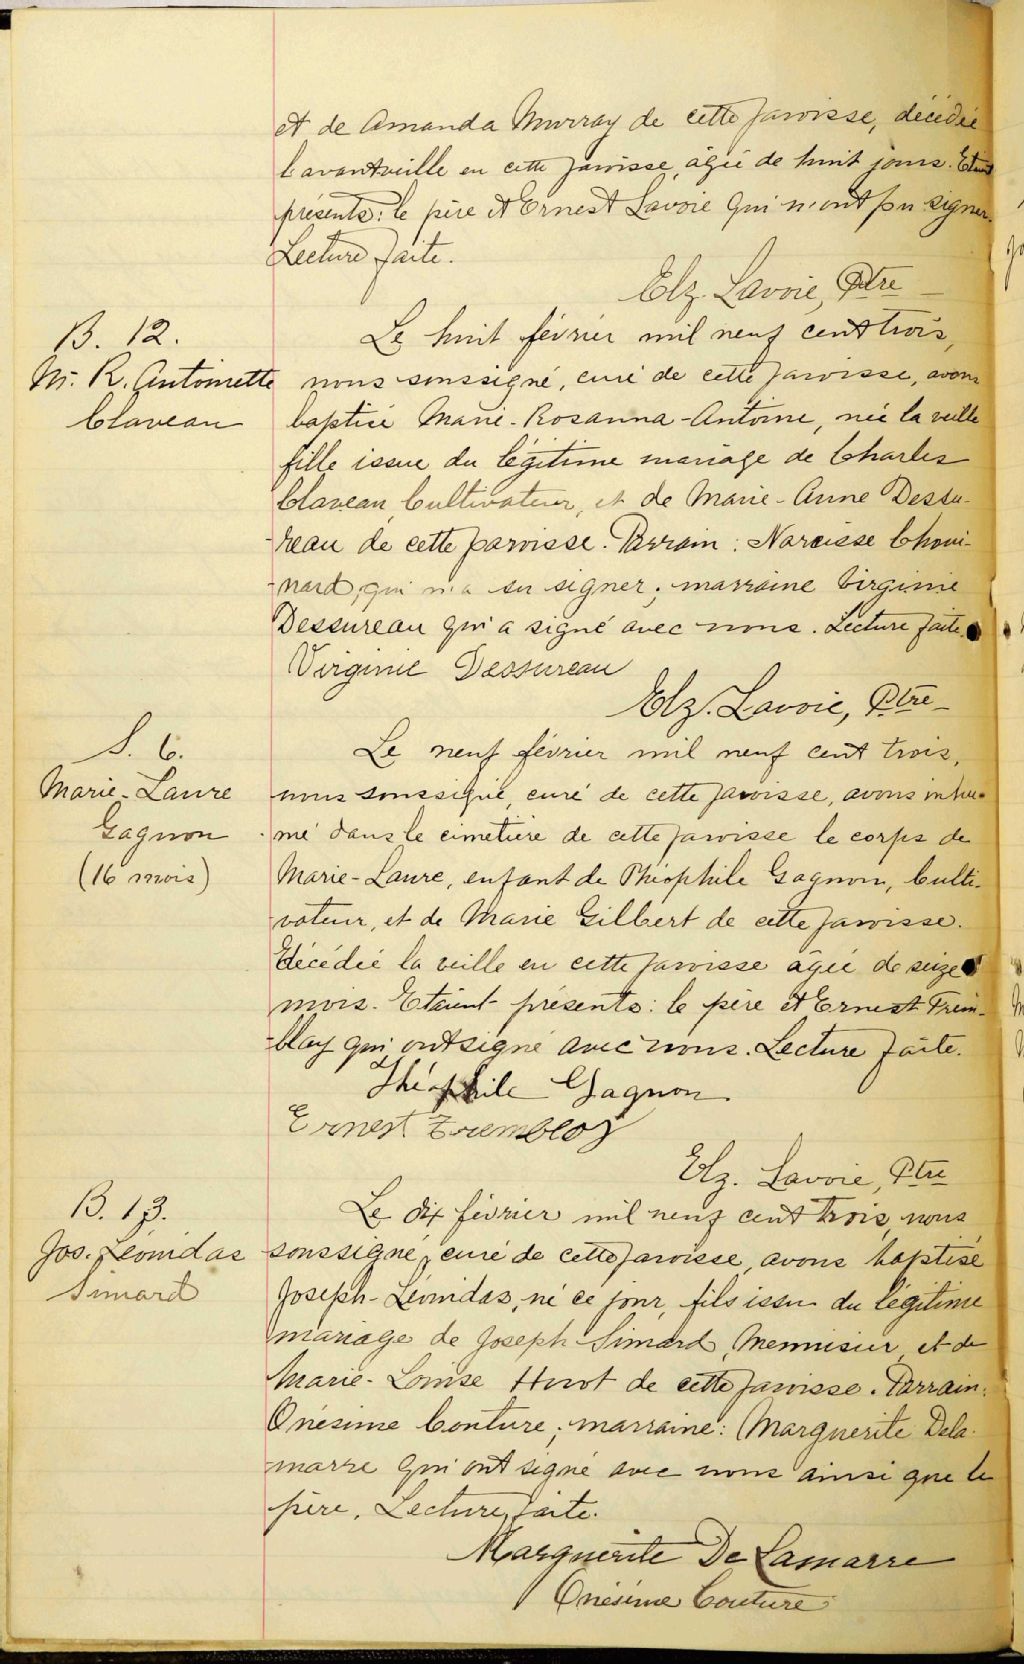 et de Amanda Murray de cette paroisse, décédée
l'avantveille en cette paroisse, âgée de huit jours. Etaient
présents: le père et Ernest Lavoie qui n'ont pu signer.
Lecture faite.
Elz. Lavoie, Ptre
B. 12.
M. R. Antoinette
Claveau
Le huit février mil neuf cent trois,
nous soussigné, curé de cette paroisse, avons
baptisé Marie-Rosanna-Antoine, née la veille
fille issue du légitime mariage de Charles
Claveau, Cultivateur, et de Marie-Anne Dessu-
-reau de cette paroisse. Parrain: Narcisse Choui-
-nard, qui n'a su signer; marraine Virginie
Dessureau qui a signé avec nous. Lecture faite.
Virginie Dessureau
Elz. Lavoie, Ptre
S. 6.
Marie-Laure
Gagnon
(16 mois)
Le neuf février mil neuf cent trois,
nous soussigné, curé de cette paroisse, avons inhu-
mé dans le cimetière de cette paroisse le corps de
Marie-Laure, enfant de Théophile Gagnon, Culti-
-vateur, et de Marie Gilbert de cette paroisse.
décédée la veille en cette paroisse âgée de seize
mois. Etaient présents: le père et Ernest Trem-
-blay qui ont signé avec nous. Lecture faite.
Théophile Gagnon
Ernest Tremblay
Elz. Lavoie, Ptre
B. 13.
Jos. Léonidas
Simard
Le dix février mil neuf cent trois, nous
soussigné, curé de cette paroisse, avons baptisé
Joseph-Léonidas, né ce jour, fils issu du légitime
mariage de Joseph Simard, Menuisier, et de
Marie-Louise Huot de cette paroisse. Parrain:
Onésime Couture; marraine: Marguerite Dela-
-marre qui ont signé avec nous ainsi que le
père. Lecture faite.
Marguerite De Lamarre
Onésime Couture